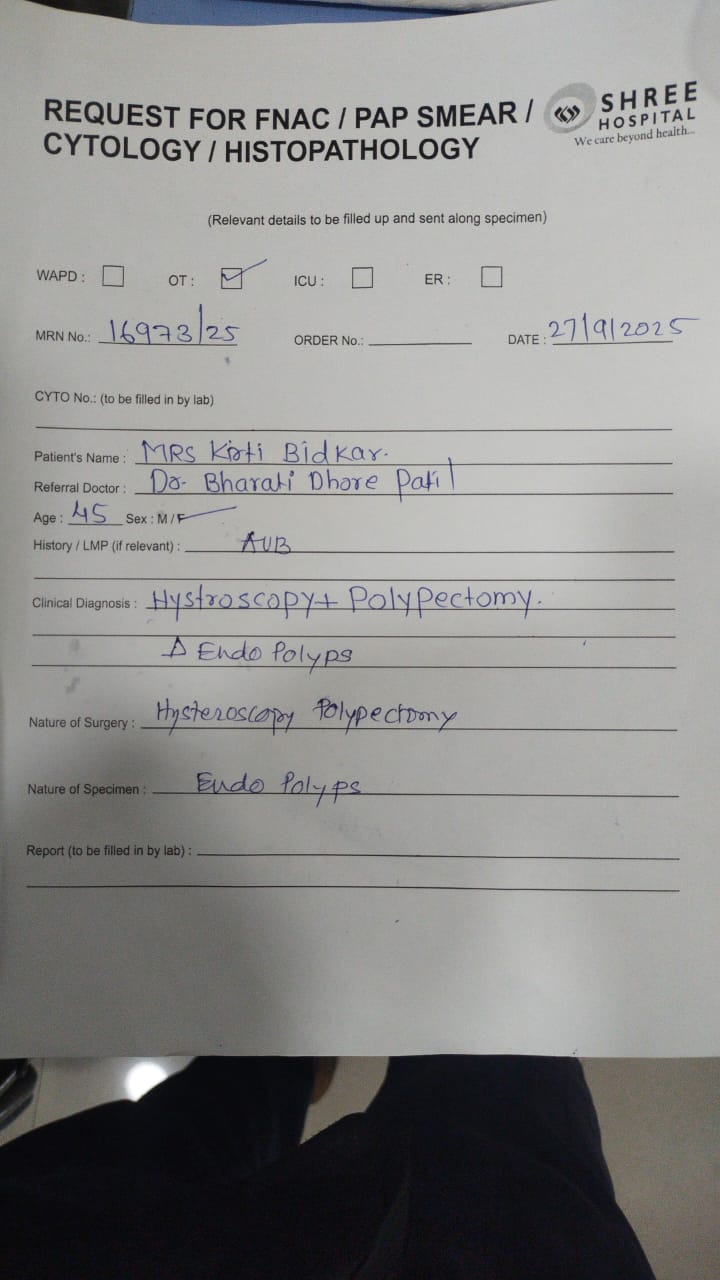 REQUEST FOR FNAC / PAP SMEAR /
CYTOLOGY / HISTOPATHOLOGY
SHREE
HOSPITAL
We care beyond health...
(Relevant details to be filled up and sent along specimen)
WAPD : OT : ICU : ER :
MRN No.: 16973/25 ORDER No.: DATE : 27/9/2025
CYTO No.: (to be filled in by lab)
Patient's Name : MRS Kirti Bidkar.
Referral Doctor : Dr. Bharati Dhore Patil
Age : 45 Sex : M / F
History / LMP (if relevant) : AUB
Clinical Diagnosis : Hystroscopy + Polypectomy.
Δ Endo Polyps
Nature of Surgery : Hysteroscopy Polypectomy
Nature of Specimen : Endo Polyps
Report (to be filled in by lab) :